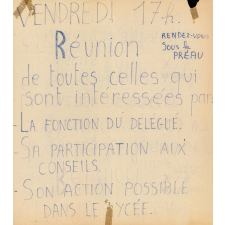 VENDREDI 17h.
RENDEZ-VOUS
Sous le
PRÉAU
Réunion
de toutes celles qui
sont intéressées par:
- LA FONCTION DU DELEGUE.
- SA PARTICIPATION AUX
CONSEILS.
- SON ACTION POSSIBLE
DANS LE LYCÉE.